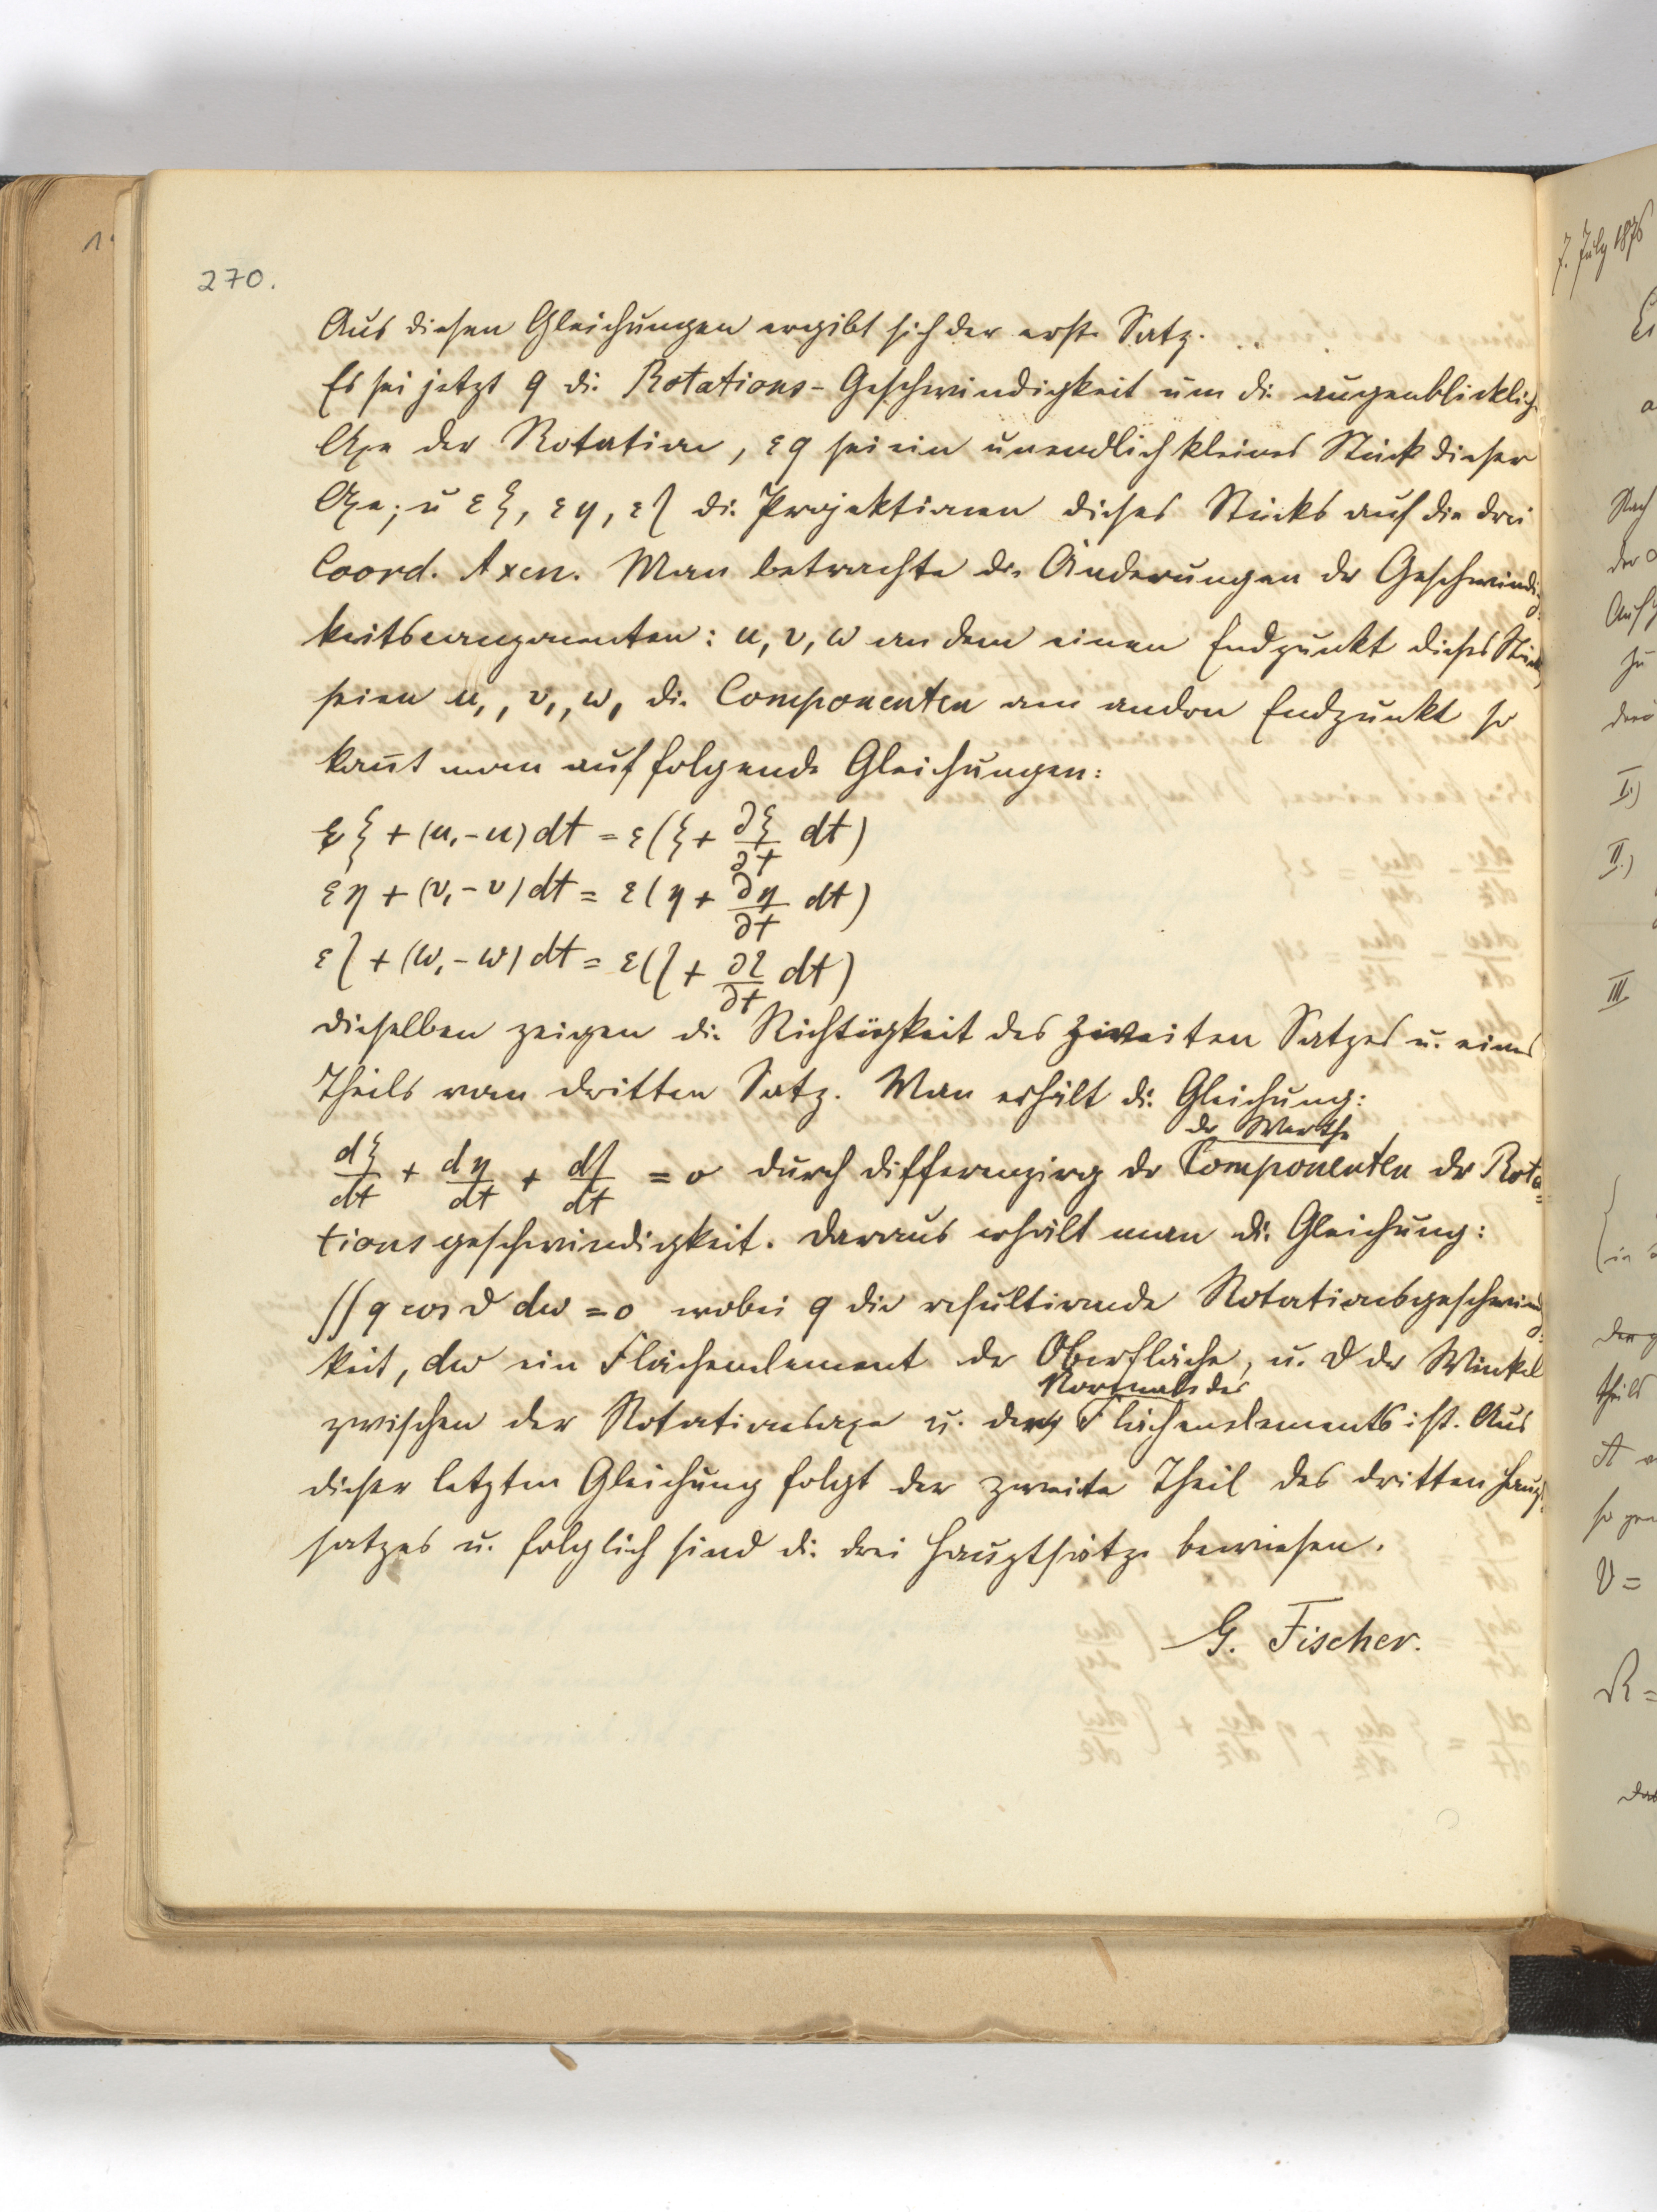 270.
Aus diesen Gleichungen ergibt sich der erste Satz.
Es sei jetzt q die Rotations-Geschwindigkeit um die augenblickliche
Axe der Rotation, εq sei ein unendlich kleines Stück dieser
Axe; u εξ, εη, εζ die Projektionen dieses Stücks auf die drei
Coord. Axen. Man betrachte die Änderungen der Geschwindig-
keitscomponenten: u, v, w an dem einen Endpunkt dieses Stücks,
seien u₁, v₁, w₁ die Componenten am andern Endpunkt so
kom̅t man auf folgende Gleichungen:
εξ + (u₁-u) dt = ε(ξ + ∂ξ/∂t dt)
εη + (v₁-v) dt = ε(η + ∂η/∂t dt)
εζ + (w₁-w) dt = ε(ζ + ∂ζ/∂t dt)
dieselben zeigen die Richtigkeit des zweiten Satzes u. eines
Theils vom dritten Satz. Man erhält die Gleichung:
der Werthe
dξ/dt + dη/dt + dζ/dt = 0 durch differenzirg der Componenten der Rota-
tionsgeschwindigkeit. Daraus erhält man die Gleichung:
∫∫ q cos ϑ dω = 0 wobei q die resultirende Rotationsgeschwindig-
keit, dω ein Flächenelement der Oberfläche, u. ϑ der Winkel
Normale des
zwischen der Rotationsaxe u. der Flächenelements ist. Aus
dieser letzten Gleichung folgt der zweite Theil des dritten Haupt-
satzes u. folglich sind die drei Hauptsätze bewiesen.
G. Fischer.
7. July 1876
Nach
der
Auf
zu
drei
I.)
II.)
III
(in
theils
so
V =
R =